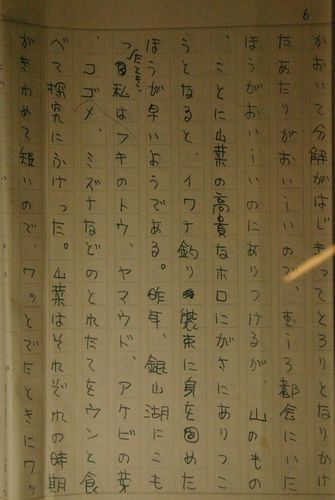 6
かおいて分解がはじまってとろりとなりかけ
たあたりがおいしいので、むしろ都会にいた
ほうがおいしいのにありつけるが、山のもの
、ことに山菜の高貴なホロにがさにありつこ
うとなると、イワナ釣り装束に身を固めた
ほうが早いようである。昨年、銀山湖にこも
ったとき、私はフキのトウ、ヤマウド、アケビの芽
、コゴメ、ミズナなどのとれたてをウンと食
べて探究にふけった。山菜はそれぞれの時期
がきわめて短いので、ワッとでたときにワッ